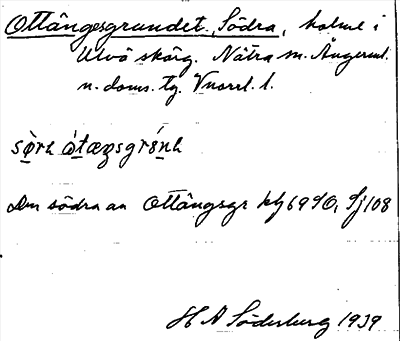 Ottångesgrundet, Södra, holme i
Ulvö skärg. Nätra sn. Ångerml.
n. doms. tg. Vnorrl. l.
Den södra av Ottångsgr kbl 69 SO, Sj 108
H A Söderberg 1939